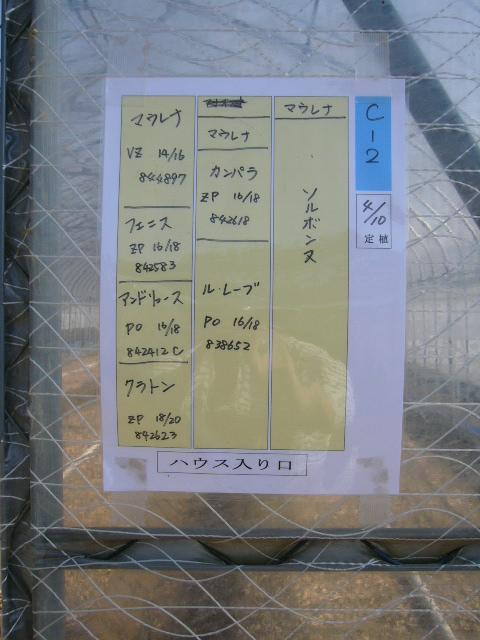 C-2
4/10
定植
マウレナ
VZ 14/16
844897
フェニス
ZP 16/18
842583
アンドリュース
PO 16/18
842412C
クラトン
ZP 18/20
842623
マウレナ
カンパラ
ZP 16/18
842618
ル・レーブ
PO 16/18
838652
マウレナ
ソルボンヌ
ハウス入り口